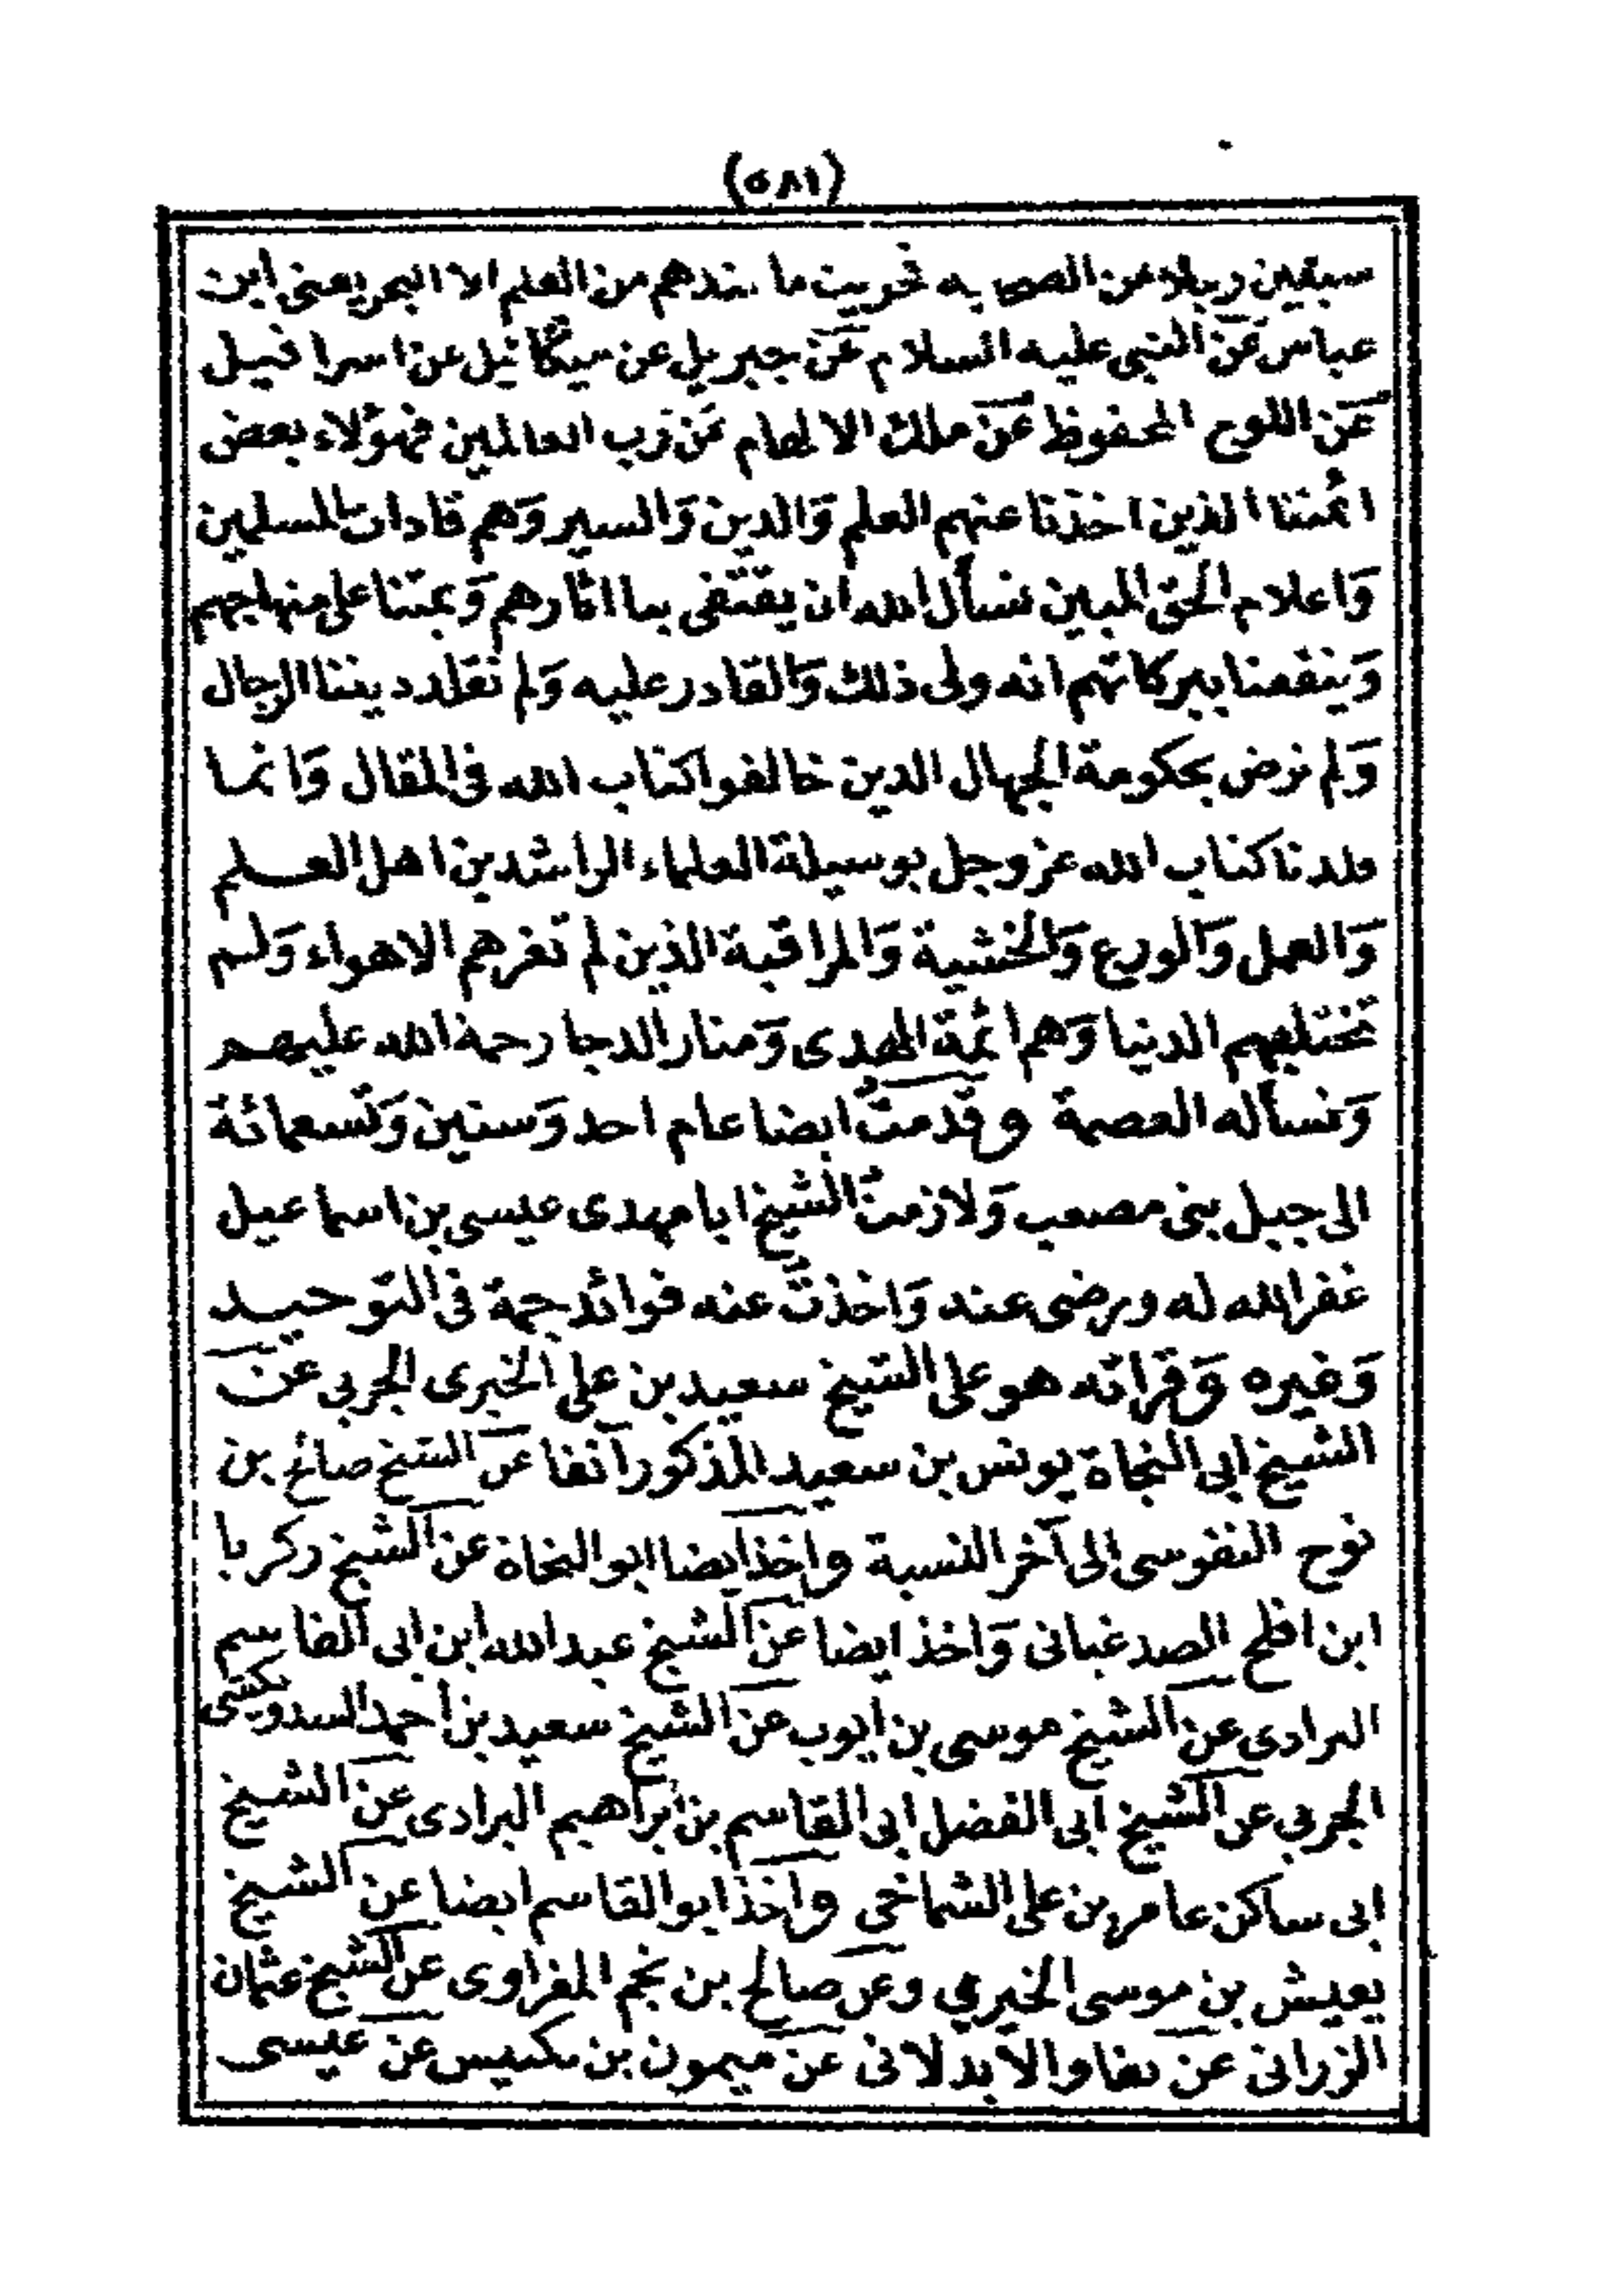 (٥٨١)
سبعين رجلا من الصحابه فحويت ما عندهم من العلم الا البحر يعنى ابن
عباس عَن النبى عليه السلام عَن جبريل عن ميكائيل عن اسرافيل
عَن اللوح المحفوظ عَن ملك الالهام عَن رب العالمين فهؤلاء بعض
ائمتنا الذين اخذنا عنهم العلم وَالدين وَالسير وَهم قادات المسلمين
وَاعلام الحق المبين نسأل الله ان يقتفى بنا اثارهم وَيمتنا على منهاجهم
وَينفعنا ببركاتهم انه ولى ذلك وَالقادر عليه وَلم نقلد ديننا الرجال
وَلم نرض بحكومة الجهال الدين خالفوا كتاب الله فى المقال وَانما
قلدنا كتاب الله عز وجل بوسيلة العلماء الراشدين اهل العلم
وَالعمل وَالورع وَالخشية وَالمراقبة الذين لم تغرهم الاهواء وَلم
تختلبهم الدنيا وَهم ائمة الهدى وَمنار الدجا رحمة الله عليهم
وَنسأله العصمة وقدمتُ ايضا عام احد وَستين وَتسعمائة
الى جبل بنى مصعب وَلازمتُ الشيخ ابا مهدى عيسى بن اسماعيل
غفر الله له ورضى عنه وَاخذتُ عنه فوائد جمة فى التوحيد
وَغيره وَقراته هو على الشيخ سعيد بن على الخيرى الجربى عن
الشيخ ابى النجاة يونس بن سعيد المذكور آنفا عن الشيخ صالح بن
نوح النفوسى الى آخر النسبة واخذ ايضا ابو النجاة عن الشيخ زكريا
ابن افلح الصدغيانى وَاخذ ايضا عن الشيخ عبد الله ابن ابى القاسم
البرادى عن الشيخ موسى بن ايوب عن الشيخ سعيد بن احمد السدويكشى
الجربى عن الشيخ ابى الفضل ابى القاسم بن ابراهيم البرادى عن الشيخ
ابى ساكن عامر بن على الشماخى واخذ ابو القاسم ايضا عن الشيخ
يعيش بن موسى الخيرى وعن صالح بن نجم المغراوى عن الشيخ عثمان
الزرانى عن الابدلانى عن ميمون بن عن عيسى